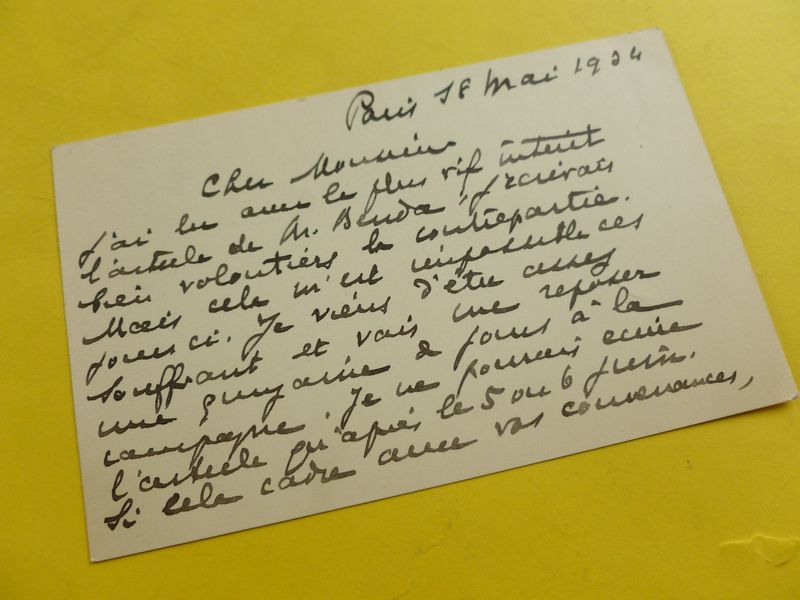 Paris 18 Mai 1934
Cher Monsieur
J'ai lu avec le plus vif intérêt
l'article de M. Benda. J'écrirais
bien volontiers la contrepartie.
Mais cela m'est impossible ces
jours ci. Je viens d'être assez
souffrant et vais me reposer
une quinzaine de jours à la
campagne. Je ne pourrais écrire
l'article qu'après le 5 ou 6 juin.
Si cela cadre avec vos convenances,